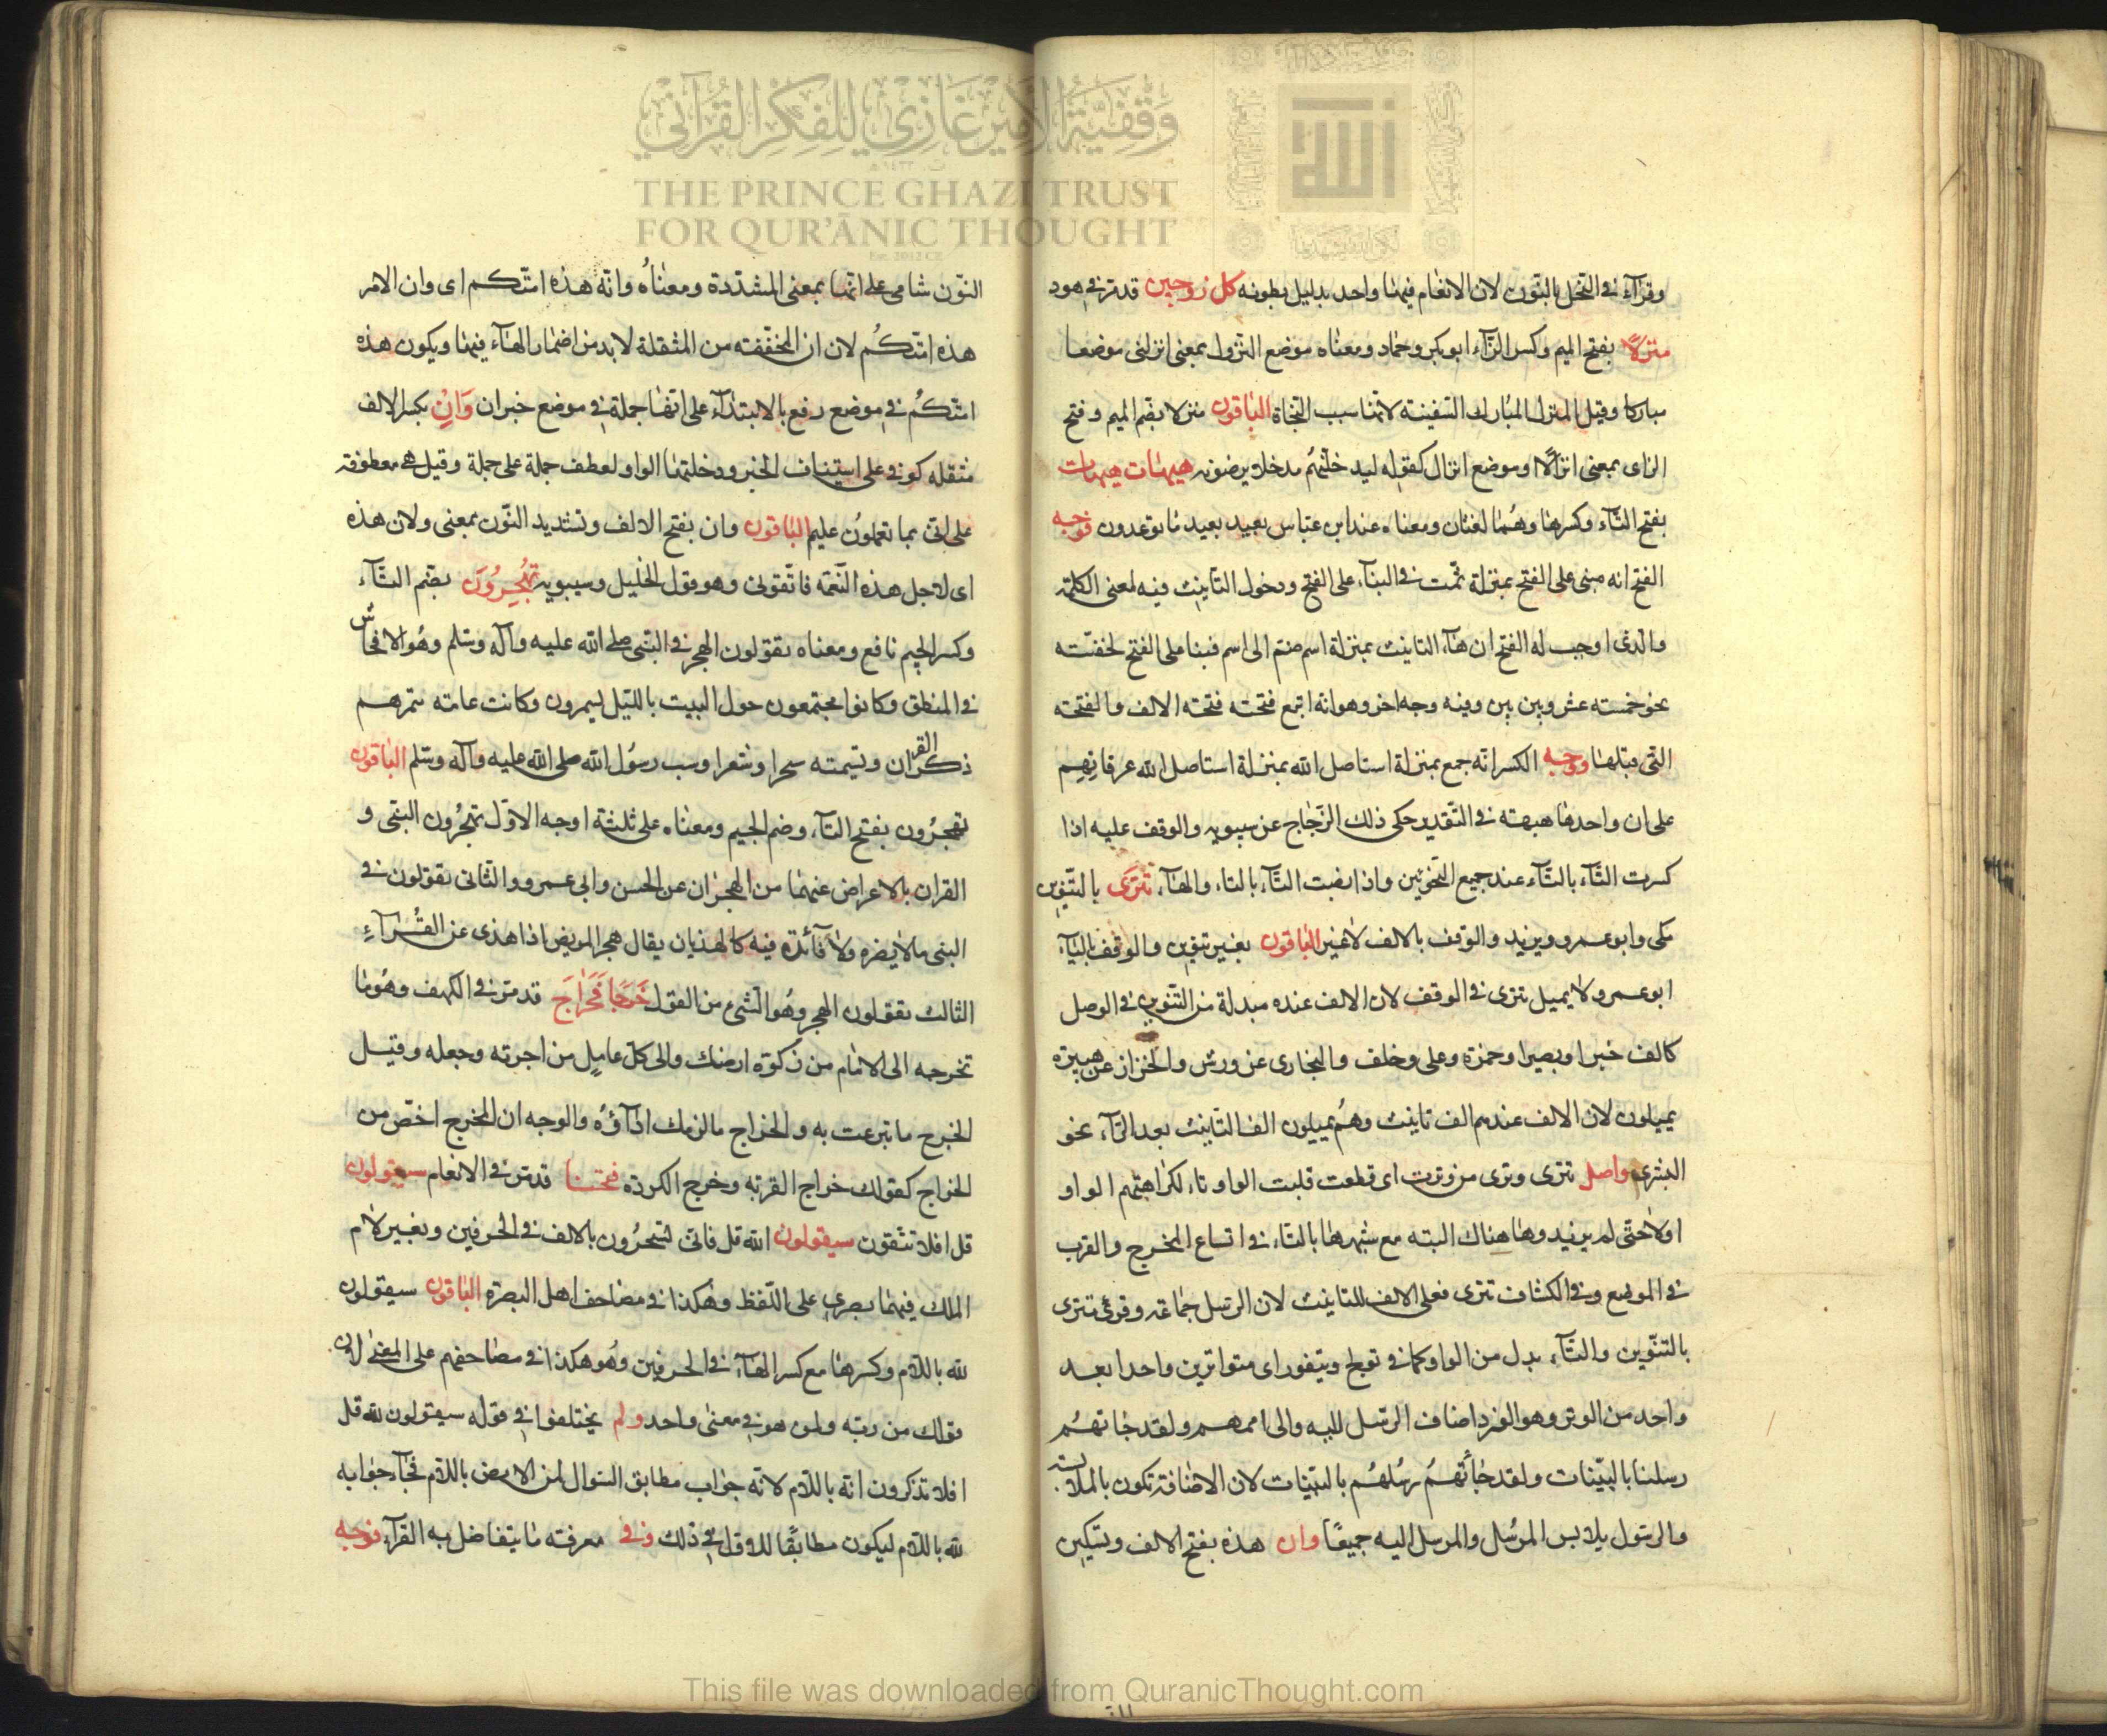 وقرآء في النحل بالنون لان الانعام فيهما واحد بدليل بطونه كل زوجين قد مر في هود
منزلًا بفتح الميم وكسر الزآء ابو بكر وحماد ومعناه موضع النزول بمعنى انزلنى موضعا
مباركا وقيل المنزل المبارك السفينة لانها سبب النجاة الباقون منزلا بضم الميم وفتح
الزاى بمعنى انزالًا او موضع انزال كقوله ليدخلنهم مدخلا يرضونه هيهات هيهات
بفتح التآء وكسرها وهما لغتان ومعناه عند ابن عباس بعيد بعيد ما توعدون فوجه
الفتح انه مبنى على الفتح بمنزلة ثمت في البنآء على الفتح ودخول التانيث فيه لمعنى الكلمة
والذى اوجب له الفتح ان هآء التانيث بمنزلة اسم ضم الى اسم فبنا على الفتح لخفته
نحو خمسته عشر وبين بين وفيه وجه اخر وهو انه اتبع فتحته فتحته الالف والفتحته
التى قبلها ووجه الكسر انه جمع بمنزلة استاصل الله بمنزلة استاصل الله عرقاتهم
على ان واحدها هيهته في التقدير حكى ذلك الزجاج عن سيبويه والوقف عليه اذا
كسرت التآء بالتآء عند جميع النحويين واذا نصبت التآء بالتاء والهآء تترى بالتنوين
مكى وابو عمرو ويزيد والوقف بالالف لا غير الباقون بغير تنوين والوقف باليآء
ابو عمرو لا يميل تترى في الوقف لان الالف عنده مبدلة من التنوين في الوصل
كالف خبرا وبصيرا وحمزة وعلى وخلف والبخارى عن ورش والخزاز عن هبيرة
يميلون لان الالف عندهم الف تانيث وهم يميلون الف التانيث بعد الرآء نحو
البشرى واصل تترى وترى من وترت اى قطعت قلبت الواو تاء لكراهتهم الواو
اولا حتى لم يزيدوها هناك البته مع شبهها بالتاء في اتساع المخرج والقرب
في الموضع وفي الكشاف تترى فعلى الالف للتانيث لان الرسل جماعة وقرئ تترى
بالتنوين والتآء بدل من الواو كما في تولج وتيقور اى متواترين واحدا بعد
واحد من الوتر وهو الفرد اضاف الرسل اليه والى اممهم ولقد جاتهم
رسلنا بالبينات ولقد جآتهم رسلهم بالبينات لان الاضافة تكون بالملابسة
والرسول يلابس المرسل والمرسل اليه جميعًا وان هذه بفتح الالف وتسكين
النون شامى على انها بمعنى المشددة ومعناه وانه هذه امتكم اى وان الامر
هذه امتكم لان ان المخففته من المثقلة لا بد من اضمار الهآء فيها ويكون هذه
امتكم في موضع رفع بالابتدآء على انها جملة في موضع خبر ان وَانِ بكسر الالف
مثقله كوفي على استيناف الخبر ودخلتها الواو لعطف جملة على جملة وقيل هى معطوفة
على انى بما تعملون عليم الباقون وان بفتح الالف وتشديد النون بمعنى ولان هذه
اى لاجل هذه النعمة فاتقون وهو قول الخليل وسيبويه تُهْجِرُونَ بضم التآء
وكسر الجيم نافع ومعناه تقولون الهجر في النبى صلى الله عليه وآله وسلم وهو الافحاش
في المنطق وكانوا يجتمعون حول البيت بالليل ليسمرون وكانت عامة سمرهم
ذكر القران وتسميته سحرا وشعرا وسب رسول الله صلى الله عليه وآله وسلم الباقون
تهجرون بفتح التآء وضم الجيم ومعناه على ثلثة اوجه الاول تهجرون النبى و
القران بالاعراض عنهما من الهجران عن الحسن وابى عمرو والثانى تقولون في
النبى ما لا يضره ولا فآئدة فيه كالهذيان يقال هجر المريض اذا هذى عن القرآء
الثالث تقولون الهجر وهو السئ من القول خَرَجًا فَخَرَاجَ قد مر في الكهف وهو ما
تخرجه الى الامام من زكوة ارضك والى كل عامل من اجرته وجعله وقيل
الخرج ما تبرعت به والخراج ما لزمك ادآؤه والوجه ان الخرج اخص من
الخراج كقولك خراج القرية وخرج الكردة فتحنا قد مر في الانعام سيقولون
قل افلا تتقون سيقولون الله قل فانى تسحرون بالالف في الحرفين وبغير لام
الملك فيهما بصرى على اللفظ وهكذا في مصاحف اهل البصرة الباقون سيقولون
لله باللام وكسرها مع كسر الهآء في الحرفين وهو هكذا في مصاحفهم على المعنى لان
قولك من ربه ولمن هو في معنى واحد ولم يختلفوا في قوله سيقولون لله قل
افلا تذكرون انه باللام لانه جواب مطابق السوال لمن الارض باللام فجآء جوابه
لله باللام ليكون مطابقًا للاول في ذلك وفي معرفته ما يتفاضل به القرآء فوجه
وقفية الأمير غازي للفكر القرآني
THE PRINCE GHAZI TRUST
FOR QUR'ĀNIC THOUGHT
Est. 2012 CE
This file was downloaded from QuranicThought.com